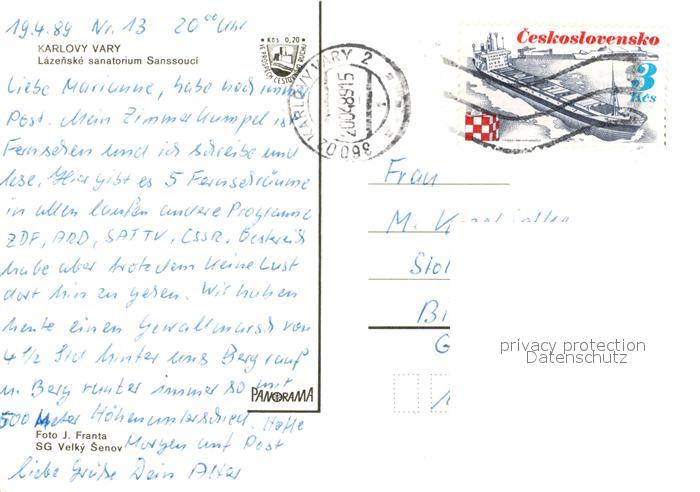 19.4.89 Nr. 13 20⁰⁰ Uhr
KARLOVY VARY
Lázeňské sanatorium Sanssouci
Kčs 0,20
VE PROSPĚCH CESTOVNÍHO RUCHU
Liebe Marianne, habe noch immer
Post. Mein Zimmerkumpel ist
Fernsehen und ich schreibe und
lese. Hier gibt es 5 Fernsehräume
in allen laufen andere Programme
ZDF, ARD, SAT TV, CSSR, Östereich
habe aber trotzdem keine Lust
dort hin zu gehen. Wir haben
heute einen Gewaltmarsch von
4 1/2 Std hinter uns Berg rauf
u. Berg runter immer so mit
500 Meter Höhenunterschied. Hoffe
Morgen auf Post
liebe Grüße Dein Alter
Foto J. Franta
SG Velký Šenov
PANORAMA
KARLOVY VARY 2
360 02 KARLOVY
Československo
3
Kčs
Frau
M.
privacy protection
Datenschutz